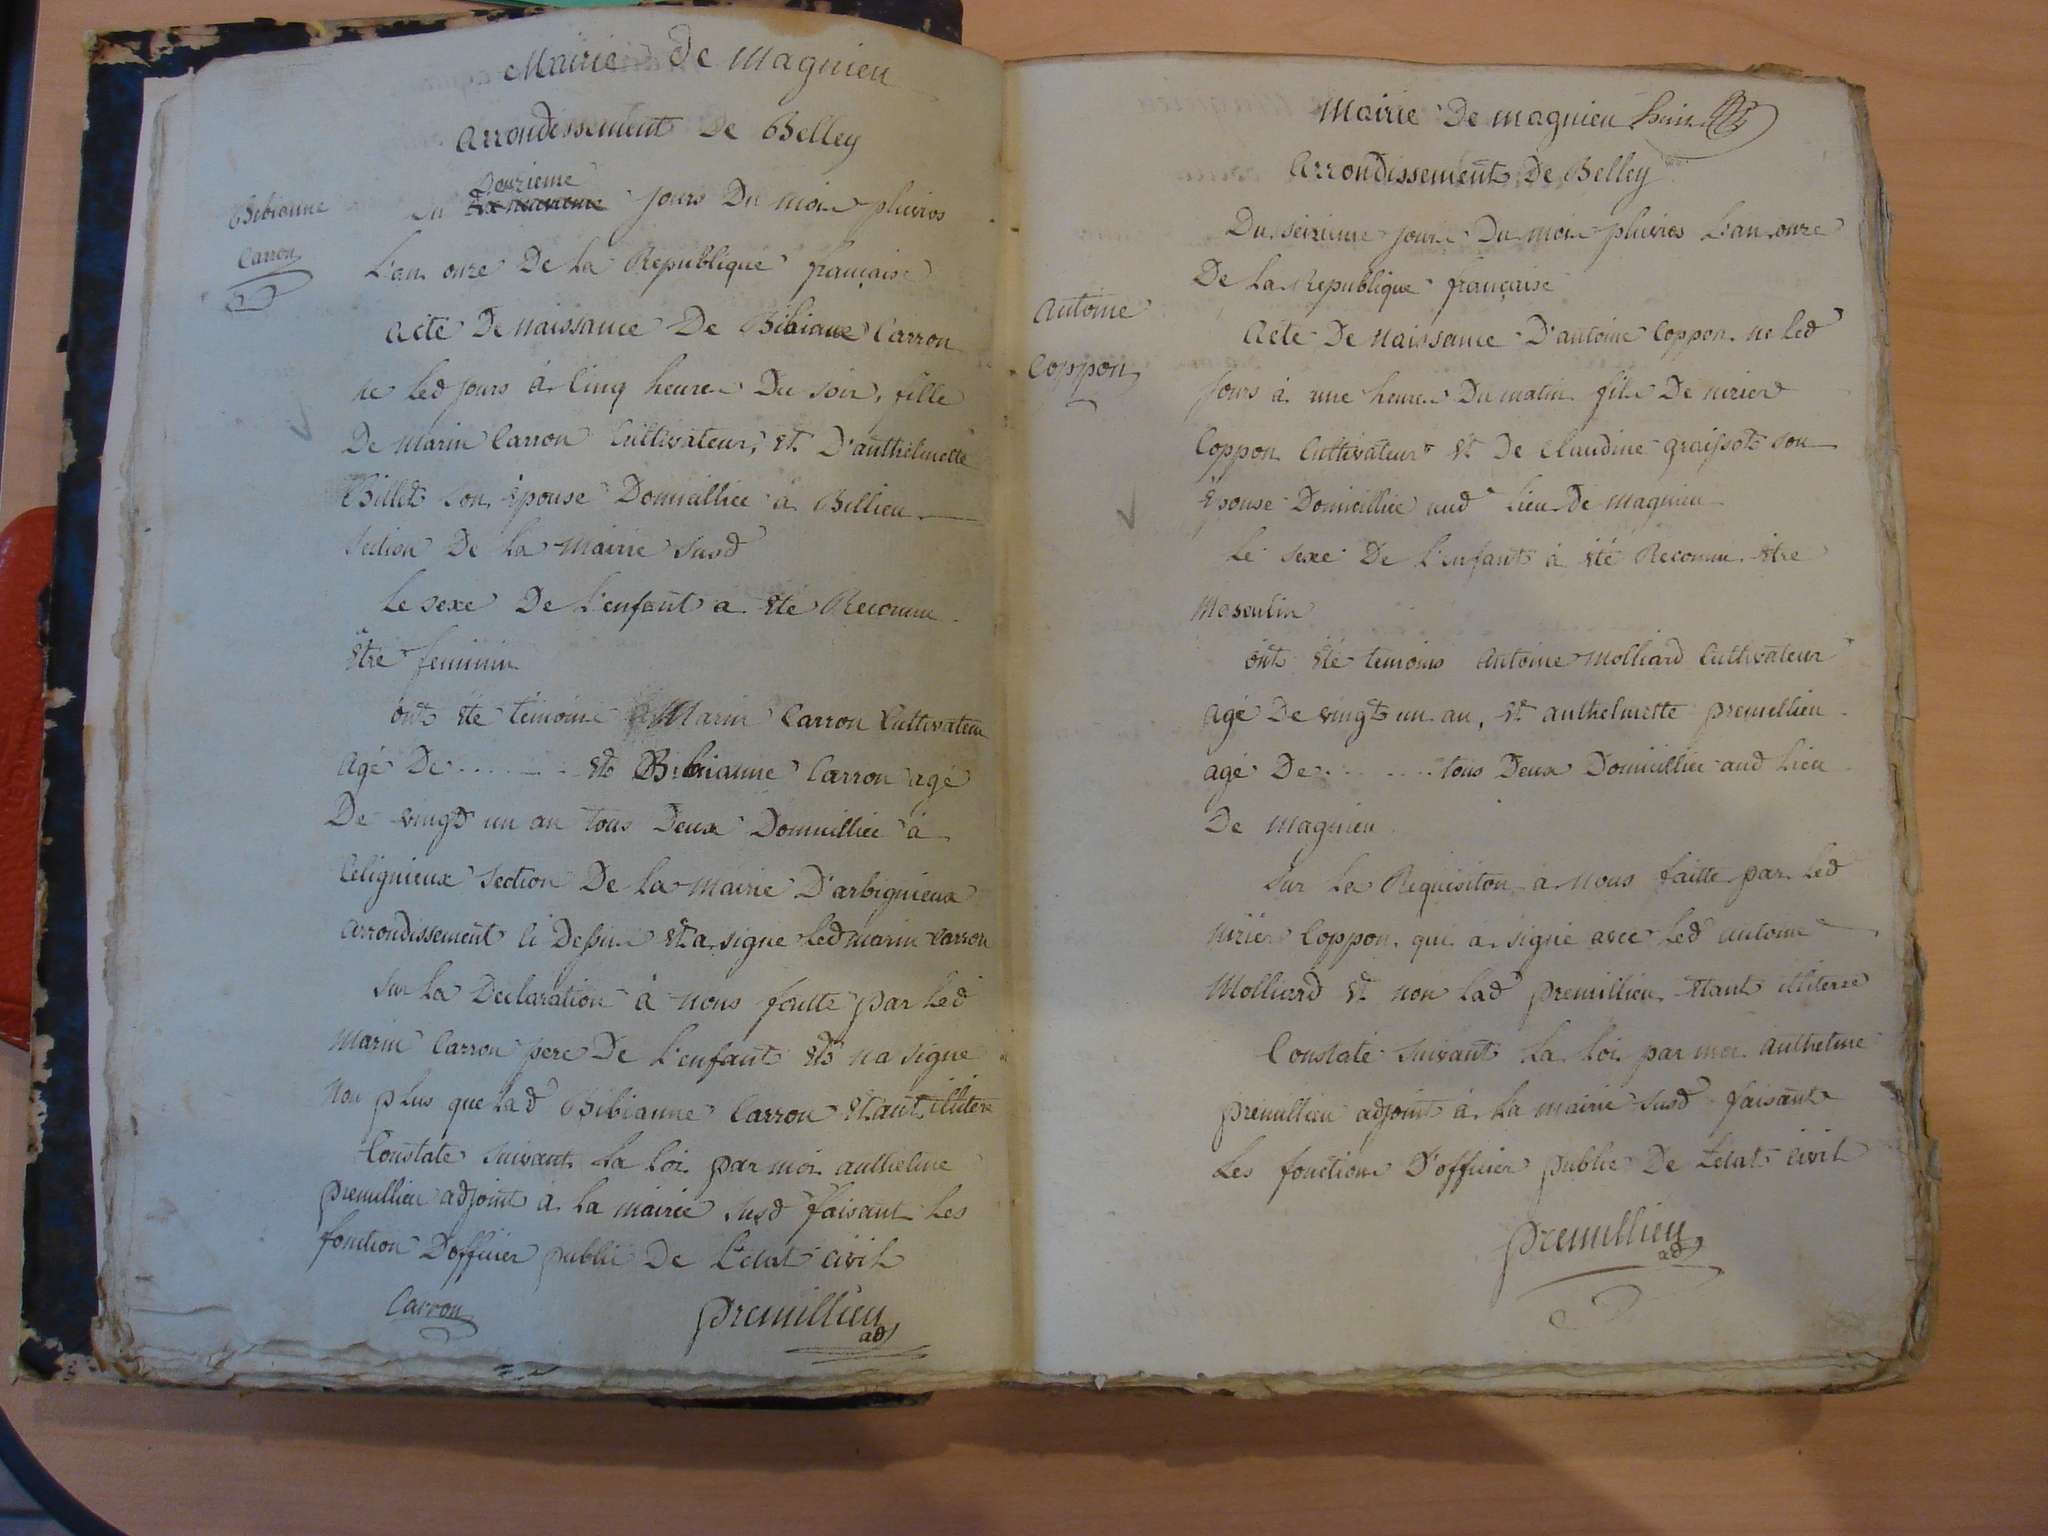 Mairie De Magnieu
arrondissement De Belley
Bibianne
Carron
Du Douzieme jours Du mois pluvios
L'an onze De La Republique française
acte De naissance De Bibiane Carron
ne led jours à Cinq heures Du soir, fille
De marin Carron Cultivateur, Et D'anthelmette
Billet son Epouse Domicilliée à Billieu
section De la mairie susd
Le sexe De L'enfant a Eté Reconnu
Etre feminin
ont Eté temoins Marin Carron Cultivateur
agé De ........ Et Bibianne Carron agé
De vingt un an tous Deux Domicillié à
Celignieux section De la mairie D'arbignieux
arrondissement Ci Dessus Et a signé led marin Carron
sur La Declaration à nous faitte par led
marin Carron pere De L'enfant Et na signé
non plus que lad Bibianne Carron Etant illitere
Constate suivant La Loi par moi anthelme
premillieu adjoint à La mairie susd faisant Les
fonction D'officier public De L'etat civil
Carron
premillieu
ad
Mairie De magnieu
arrondissement De Belley
Du seizieme jours Du mois pluvios L'an onze
De La Republique française
Antoine
Coppon
acte De naissance D'antoine Coppon ne led
jours à une heures Du matin fils De nizier
Coppon Cultivateur Et De Claudine graissot son
Epouse Domicilliée aud Lieu De magnieu
Le sexe De L'enfant à Eté Reconnu Etre
Masculin
ont Eté temoins Antoine Molliard Cultivateur
agé De vingt un an, Et anthelmette premillieu
agé De ........ tous Deux Domicillié aud Lieu
De magnieu
sur La Requisiton a nous faitte par led
nizier Coppon qui a signé avec led antoine
Molliard Et non lad premillieu Etant illitere
Constaté suivant La Loi par moi anthelme
premillieu adjoint à La mairie susd faisant
Les fonctions D'officier public De L'etat civil
premillieu
ad